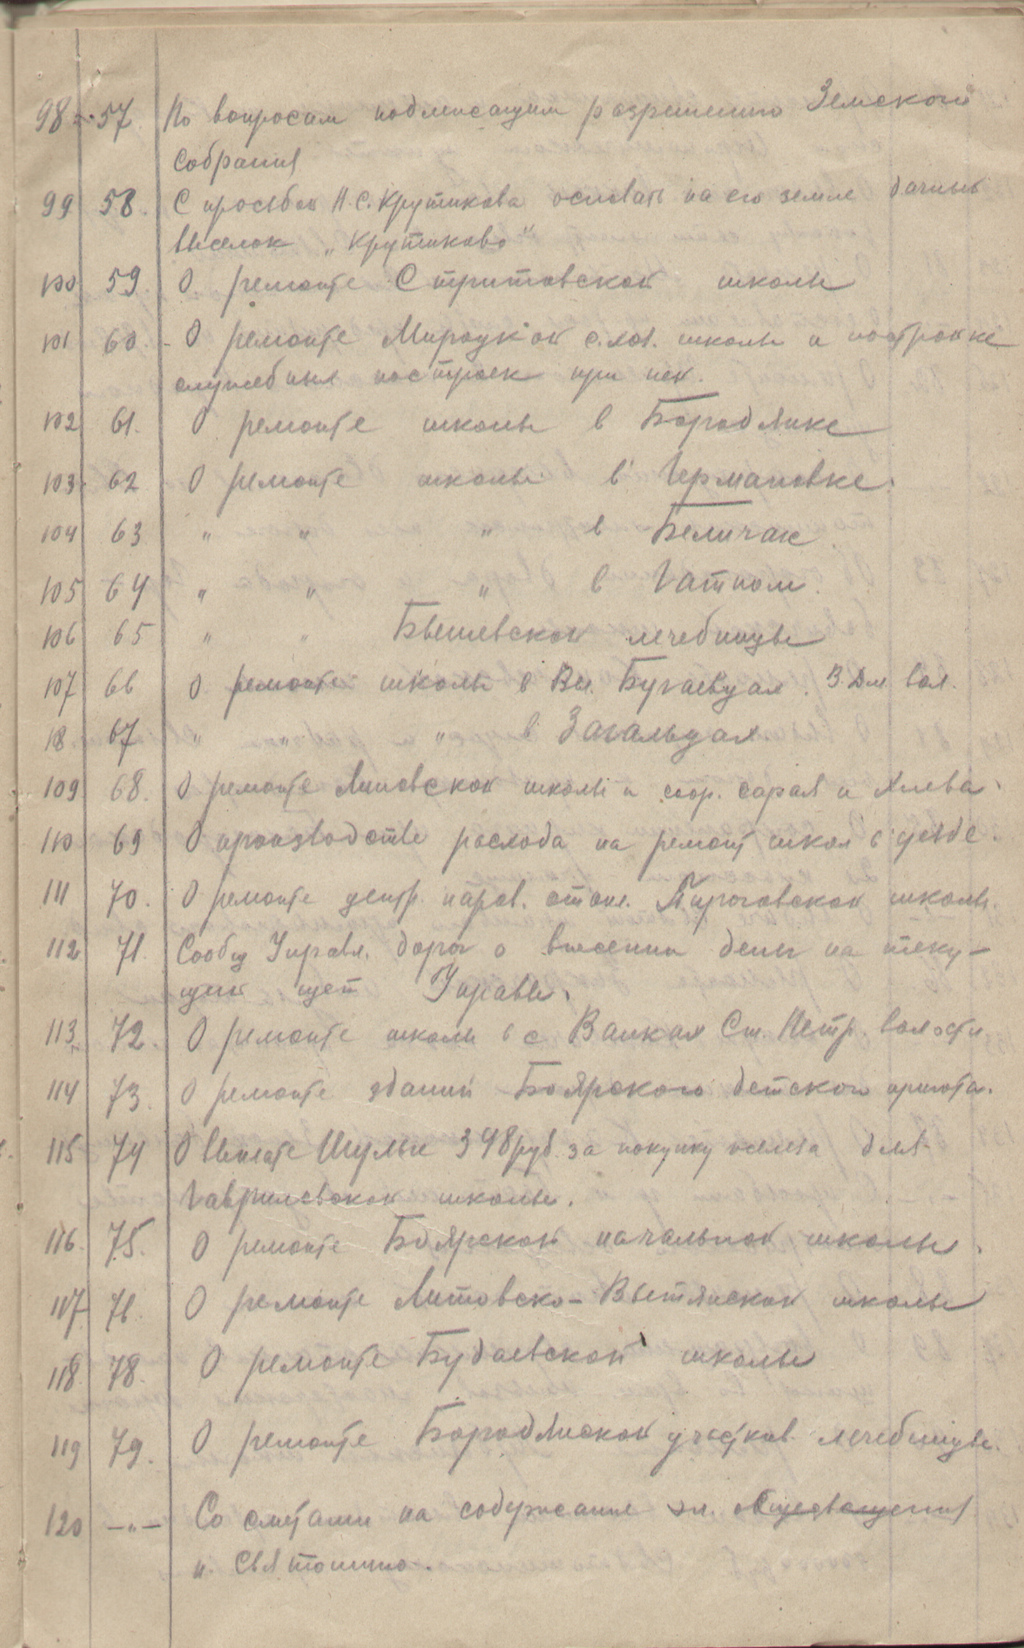 98 57 По вопросам подлежащим разрешению Земского
собрания
99 58. С просьбой Н.С. Крутикова основать на его земле дачный
выселок „Крутиково"
100 59. О ремонте Стритовской школы
101 60. О ремонте с.хоз. школы и постройке
служебных построек при ней.
102 61. О ремонте школы в Бородянке
103 62 О ремонте школы в Германовке.
104 63 " " " в Беличах
105 64 " " " в Гатном.
106 65 " " Бышевской лечебницы
107 66 О ремонте школы в Вел. Бугаевцах. В. Дм вол.
18 67 " " " в Загальцах.
109 68. О ремонте Липовской школы и соор. сарая и хлева.
110 69 О производстве расхода на ремонт школ в уезде.
111 70. О ремонте центр. паров. отопл. Пироговской школы.
112 71. Сообщ Управл. дорог о внесении денег на теку-
щий щет Управы.
113 72. О ремонте школы в с Ст. Петр. волости
114 73. О ремонте зданий Боярского детского приюта.
115 74 О выплате Шульги 348 руб. за покупку железа для
Гавриловской школы.
116 75. О ремонте Боярской начальной школы.
117 76. О ремонте Литовско-Витянской школы
118 78. О ремонте Будаевской школы
119 79. О ремонте Бородянской участков. лечебницы.
120 —"— Со сметами на содержание эл. освещения
п. Святошино.